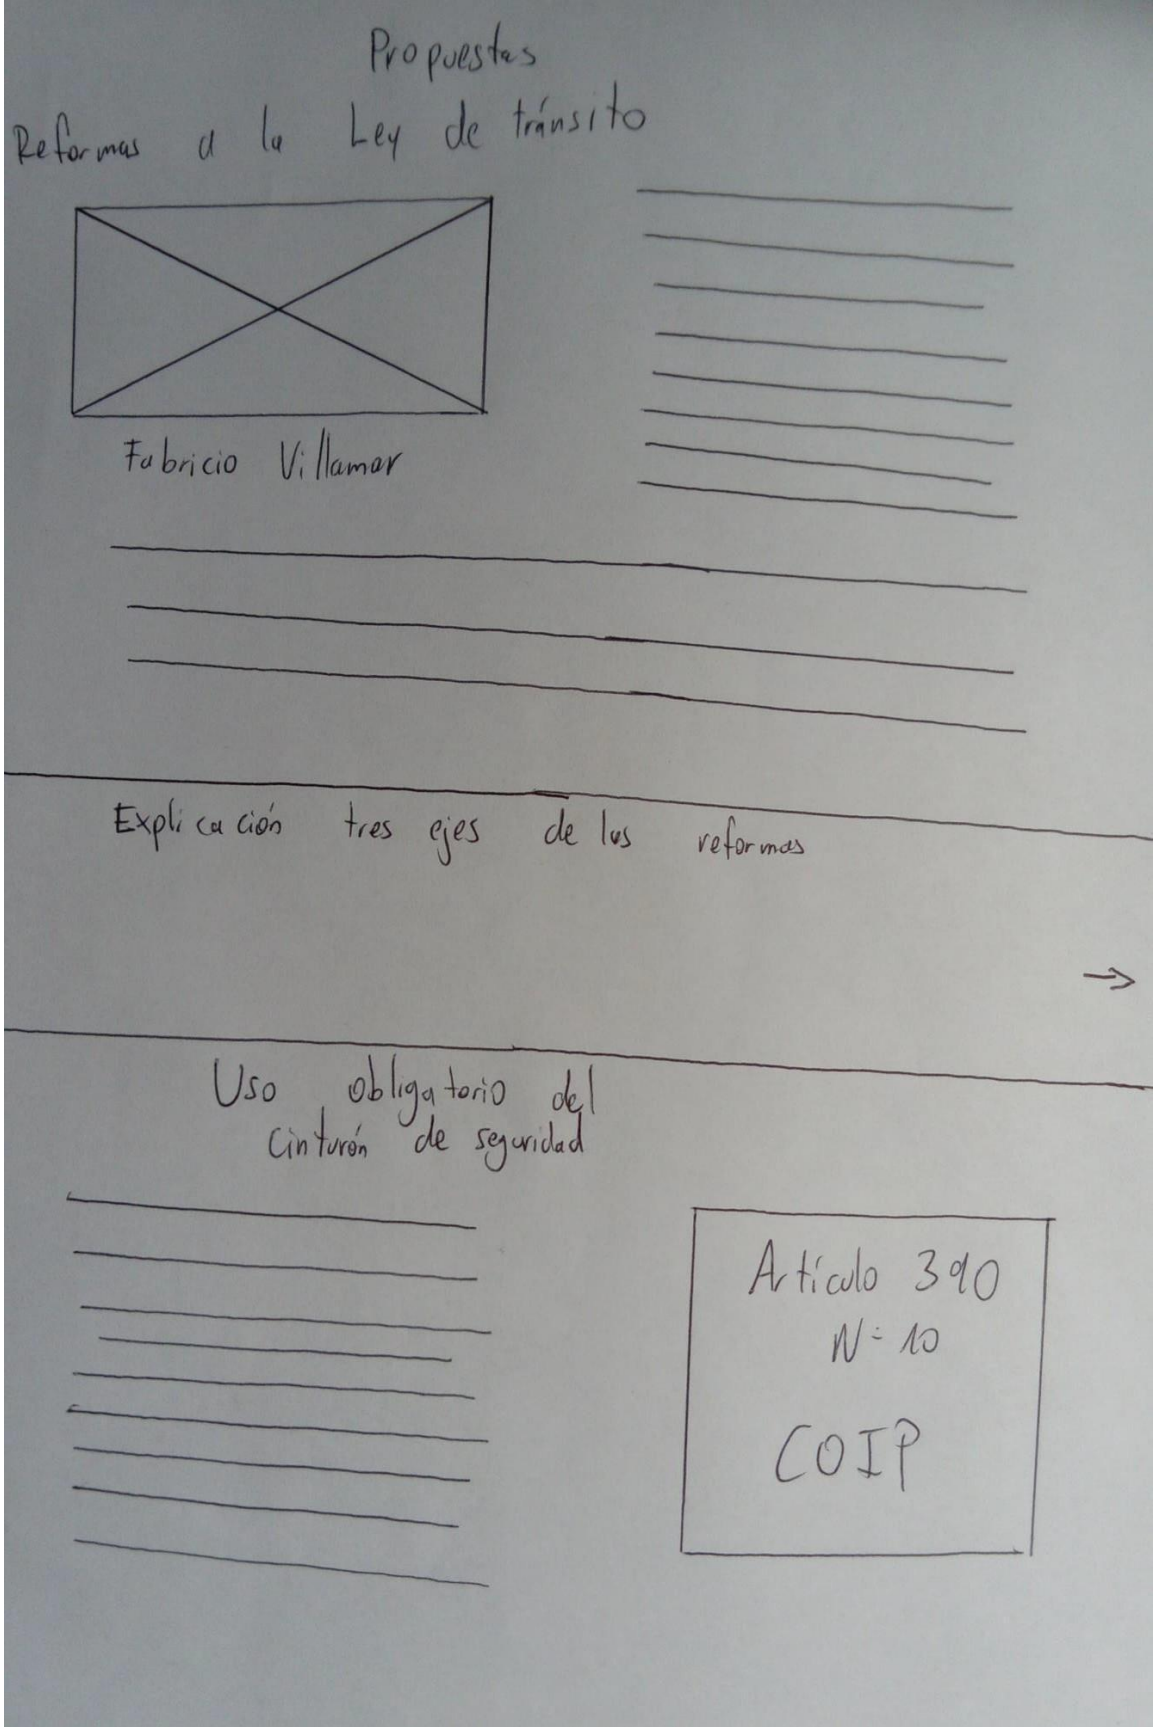 Propuestas
Reformas a la Ley de tránsito
Fabricio Villamar
Explicación tres ejes de las reformas
→
Uso obligatorio del
cinturón de seguridad
Artículo 390
N=10
COIP